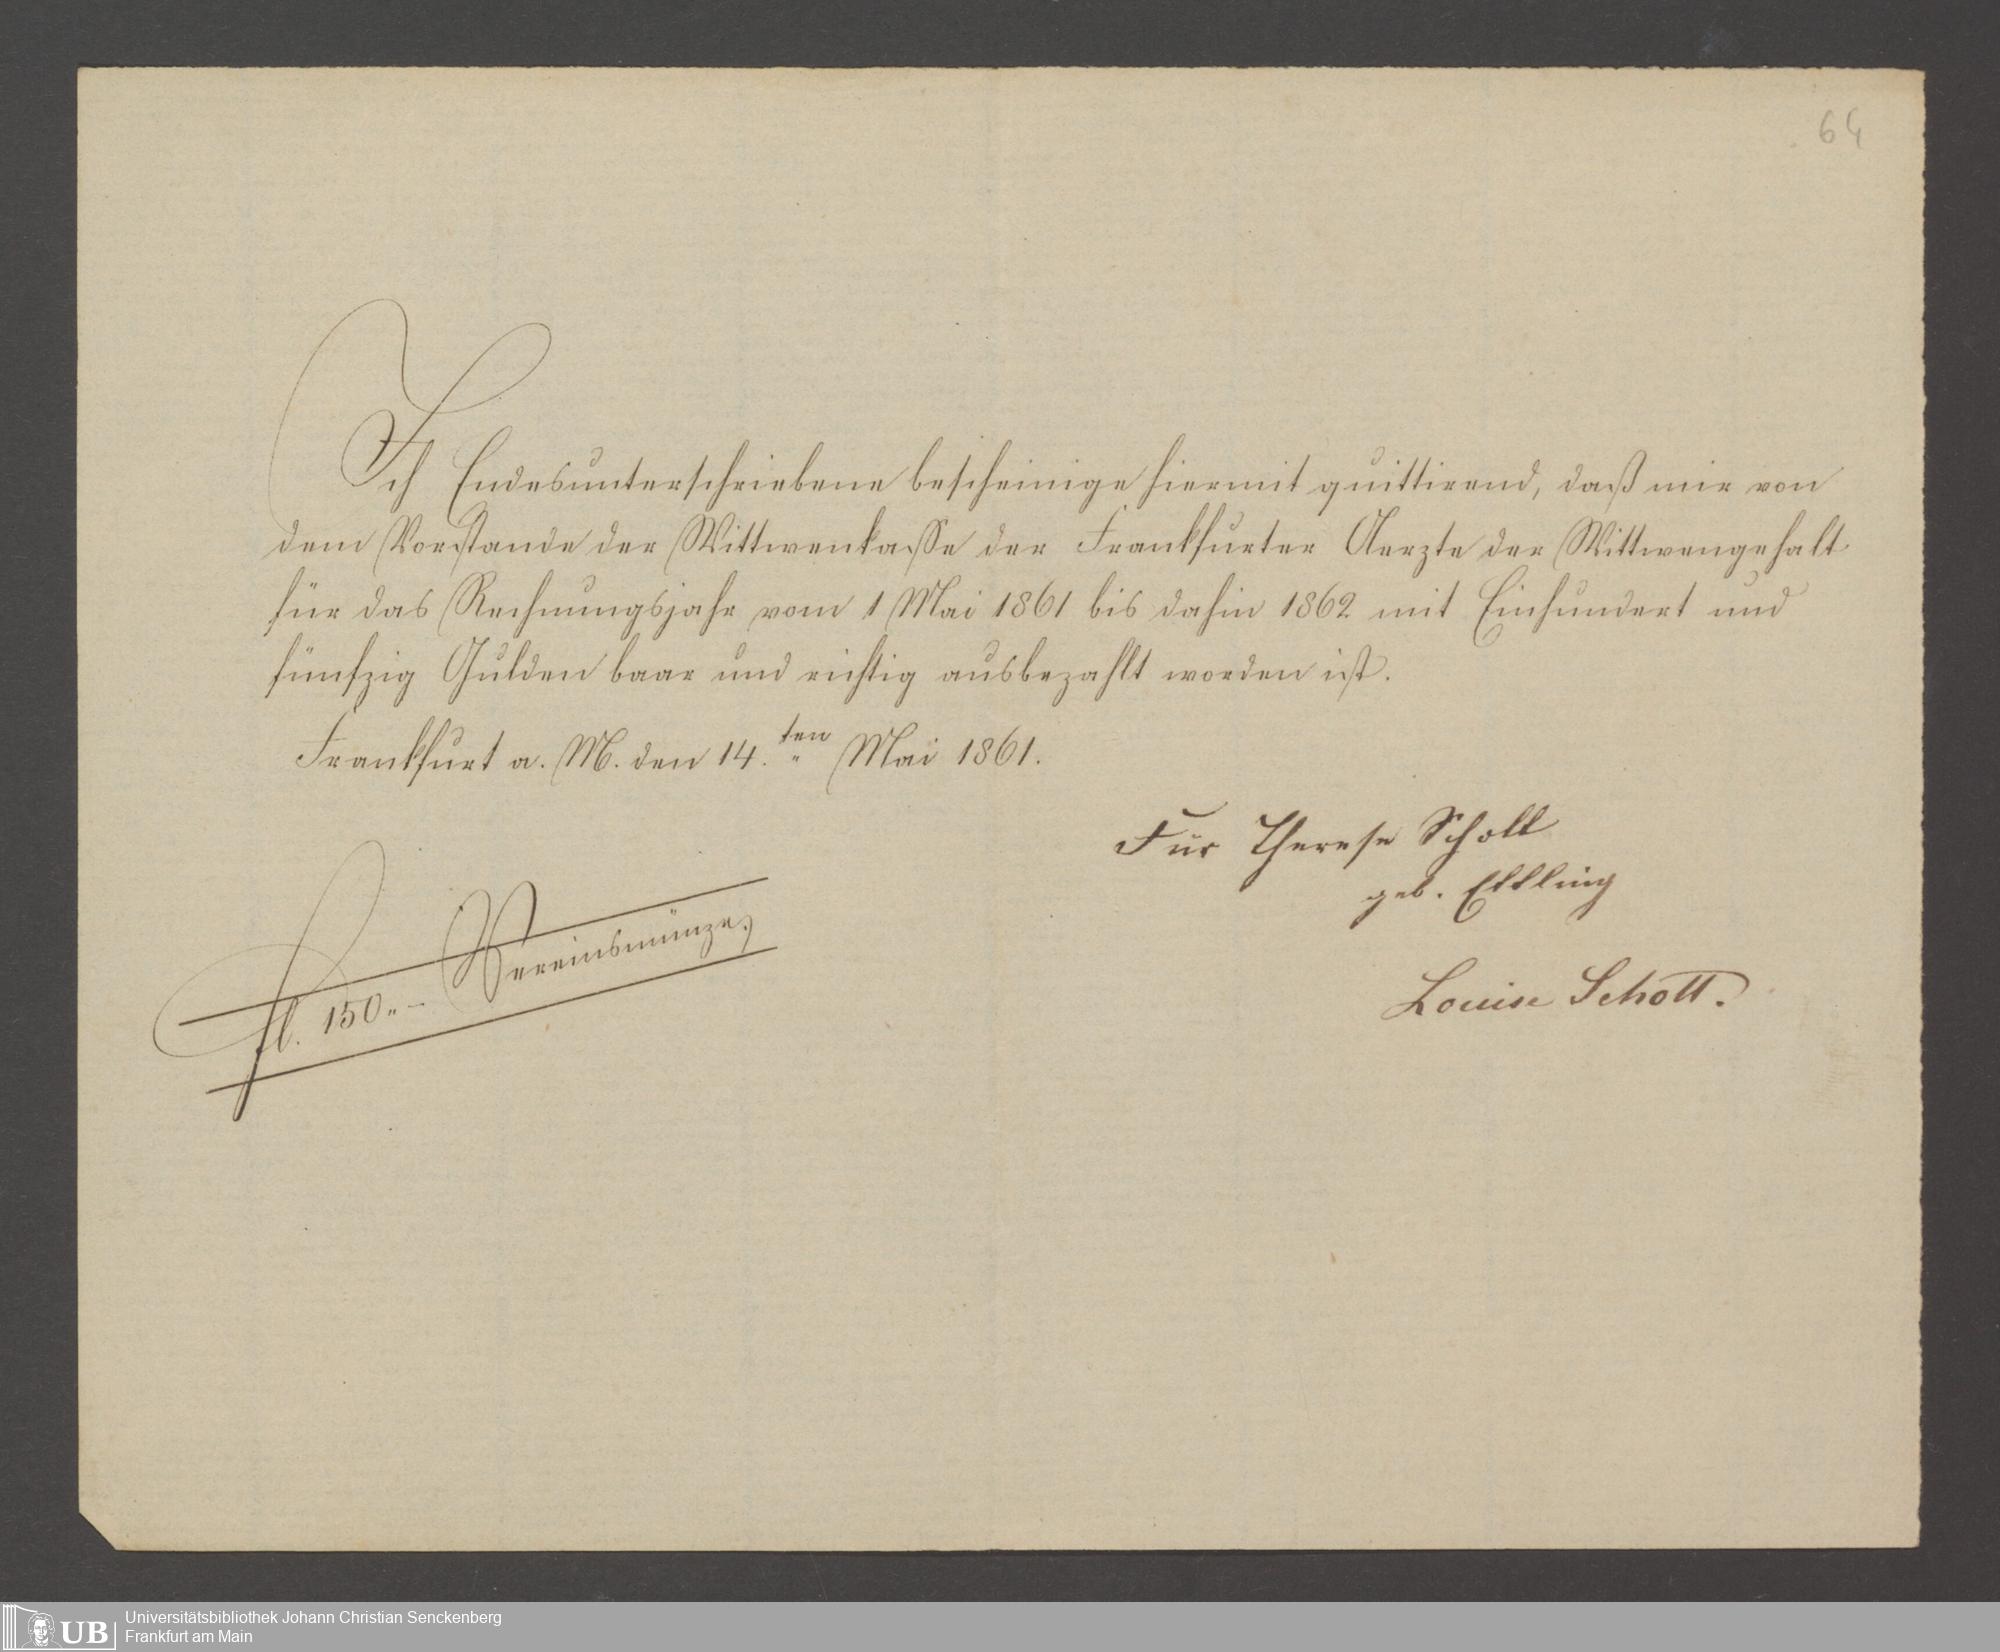 64
Ich Endesunterschriebene bescheinige hiermit quittirend, daß mir von
dem Vorstande der Wittwenkasse der Frankfurter Aerzte der Wittwengehalt
für das Rechnungsjahr vom 1 Mai 1861 bis dahin 1862 mit Einhundert und
fünfzig Gulden baar und richtig ausbezahlt worden ist.
Frankfurt a. M. den 14.ten Mai 1861.
Für Therese Schott
geb. Ettling
fl. 150.„– Vereinsmünze.
Louise Schott.
UB Universitätsbibliothek Johann Christian Senckenberg
Frankfurt am Main